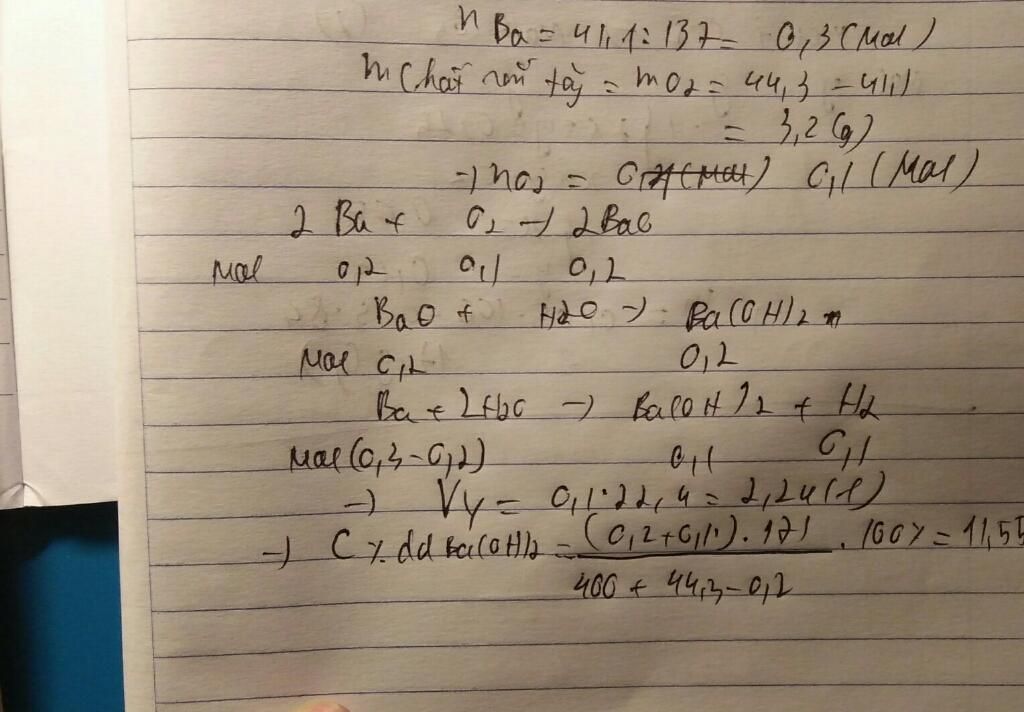 n Ba = 41,1 : 137 = 0,3 (Mol)
m Chất rắn tăg = mO2 = 44,3 - 41,1
= 3,2 (g)
→ nO2 = 0,1 (Mol)
2 Ba + O2 → 2BaO
Mol 0,2 0,1 0,2
BaO + H2O → Ba(OH)2
Mol 0,2 0,2
Ba + 2H2O → Ba(OH)2 + H2
Mol (0,3-0,2) 0,1 0,1
→ Vy = 0,1.22,4 = 2,24 (l)
→ C% dd Ba(OH)2 = (0,2+0,1).171 . 100% = 11,55
400 + 44,3 - 0,2